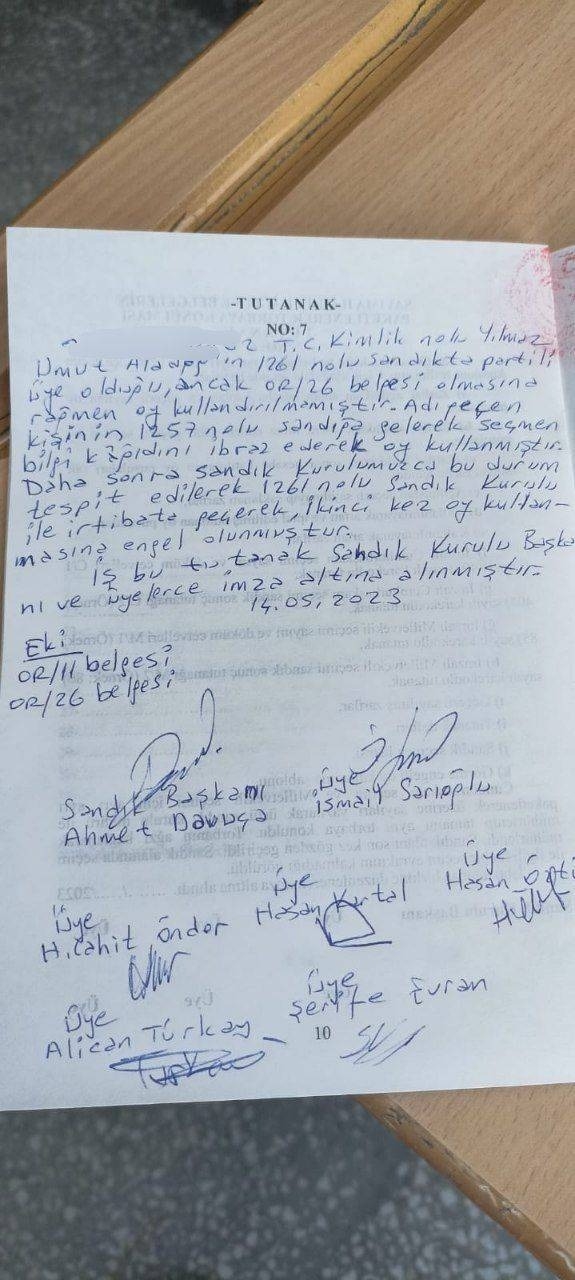 -TUTANAK-
NO: 7
T.C. Kimlik nolu Yılmaz
Umut 1261 nolu sandıkta partili
üye olduğu, ancak OR/26 belgesi olmasına
rağmen oy kullandırılmamıştır. Adı geçen
kişinin 1257 nolu sandığa gelerek seçmen
bilgi kağıdını ibraz ederek oy kullanmıştır.
Daha sonra sandık Kurulumuzca bu durum
tespit edilerek 1261 nolu Sandık Kurulu
ile irtibata geçerek, ikinci kez oy kullan-
masına engel olunmuştur.
İş bu tutanak Sandık Kurulu Başka
nı ve üyelerce imza altına alınmıştır.
14.05.2023
Eki
OR/11 belgesi
OR/26 belgesi
Sandık Başkanı
Ahmet Davuça
Üye
İsmail Sarıoğlu
Üye
H.Cahit Öndor
Üye
Hasan Kartal
Üye
Hasan
Üye
Alican Türkay
Üye
Şerife Evran
10